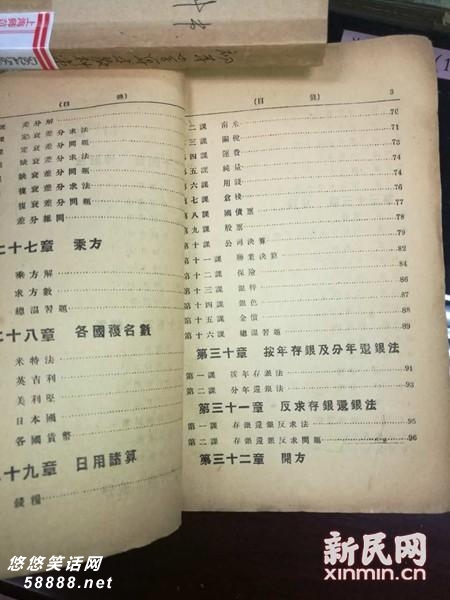 上海鄉
(目 錄)
課 差分解
課 定衰差分求法
課 定衰差分問題
缺衰差分求法
缺衰差分問題
複衰差分求法
複衰差分問題
差分雜問
二十七章 乘方
乘方解
求方數
總溫習題
二十八章 各國複名數
米特法
英吉利
美利堅
日本國
各國貨幣
二十九章 日用諸算
錢糧
(目 錄) 3
二課 南米 70
三課 關稅 71
第四課 運費 74
第五課 純量 74
第六課 用錢 74
第七課 倉棧 76
第八課 國債票 77
第九課 股票 78
第十課 公司決算 79
第十一課 聯業決算 82
第十二課 保險 84
第十三課 銀特 86
第十四課 銀色 87
第十五課 金價 88
第十六課 總溫習題 89
第三十章 按年存銀及分年還銀法
第一課 按年存銀法 91
第二課 分年還銀法 93
第三十一章 反求存銀還銀法
第一課 存銀還銀反求法 95
第二課 存銀還銀反求問題 96
第三十二章 開方
悠悠笑话网
58888.net
新民网
xinmin.cn